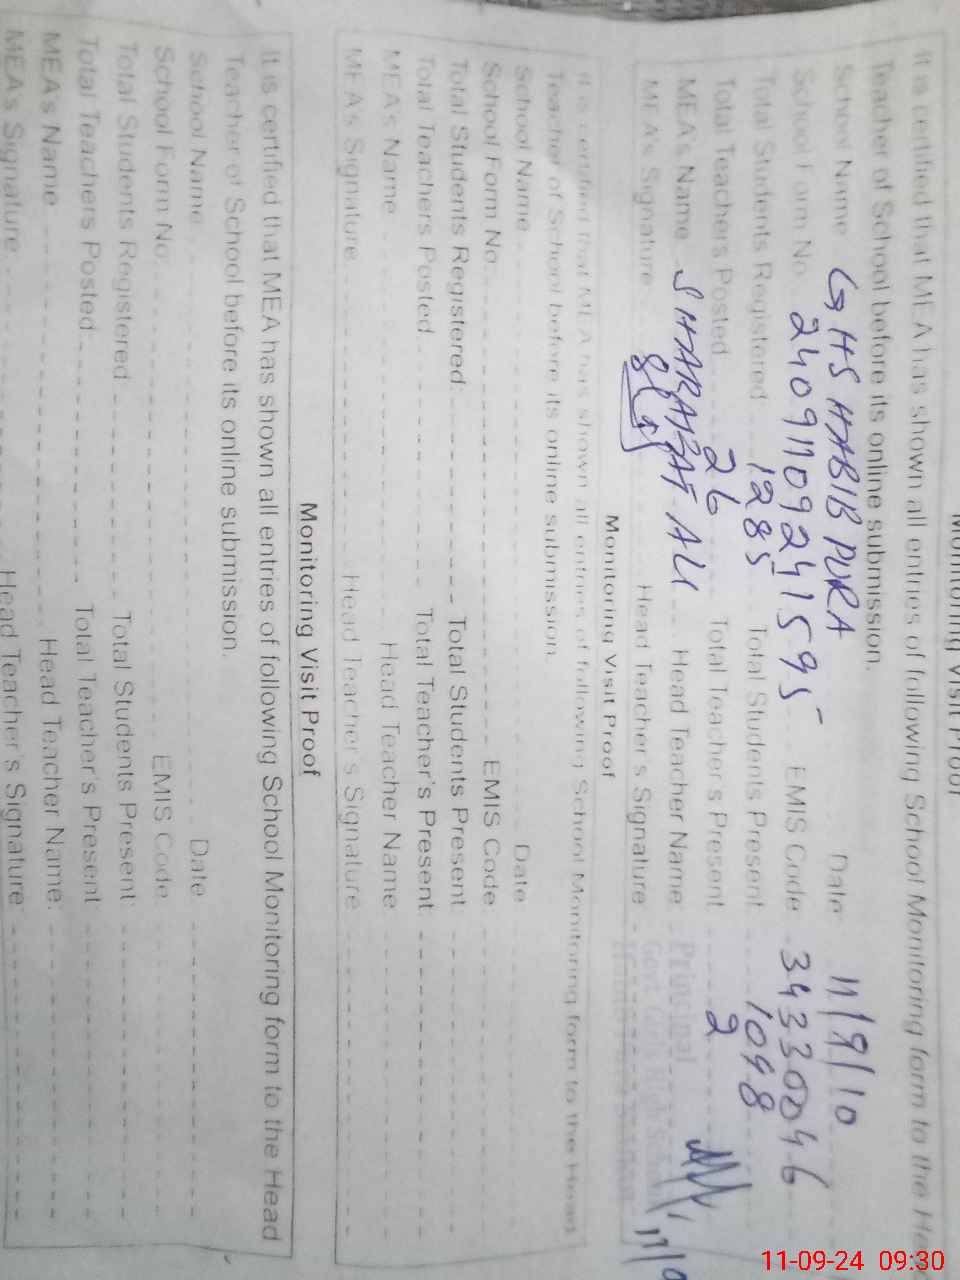 Monitoring Visit Proof
It is certified that MEA has shown all entries of following School Monitoring form to the
Teacher of School before its online submission.
School Name GHS HABIB PURA Date 11/9/10
School Form No. EMIS Code 34330046
Total Students Registered 1285 Total Students Present 1098
Total Teachers Posted 26 Total Teacher's Present 2
MEA's Name SHARAFAT ALI Head Teacher Name Principal
MEA's Signature Head Teacher's Signature
Monitoring Visit Proof
It is certified that MEA has shown all entries of following School Monitoring form to the Head
Teacher of School before its online submission.
School Name Date
School Form No. EMIS Code:
Total Students Registered: Total Students Present:
Total Teachers Posted: Total Teacher's Present:
MEA's Name Head Teacher Name
MEA's Signature Head Teacher's Signature
Monitoring Visit Proof
It is certified that MEA has shown all entries of following School Monitoring form to the Head
Teacher of School before its online submission.
School Name Date
School Form No: EMIS Code:
Total Students Registered Total Students Present:
Total Teachers Posted: Total Teacher's Present:
MEA's Name Head Teacher Name:
MEA's Signature Head Teacher's Signature:
11-09-24 09:30